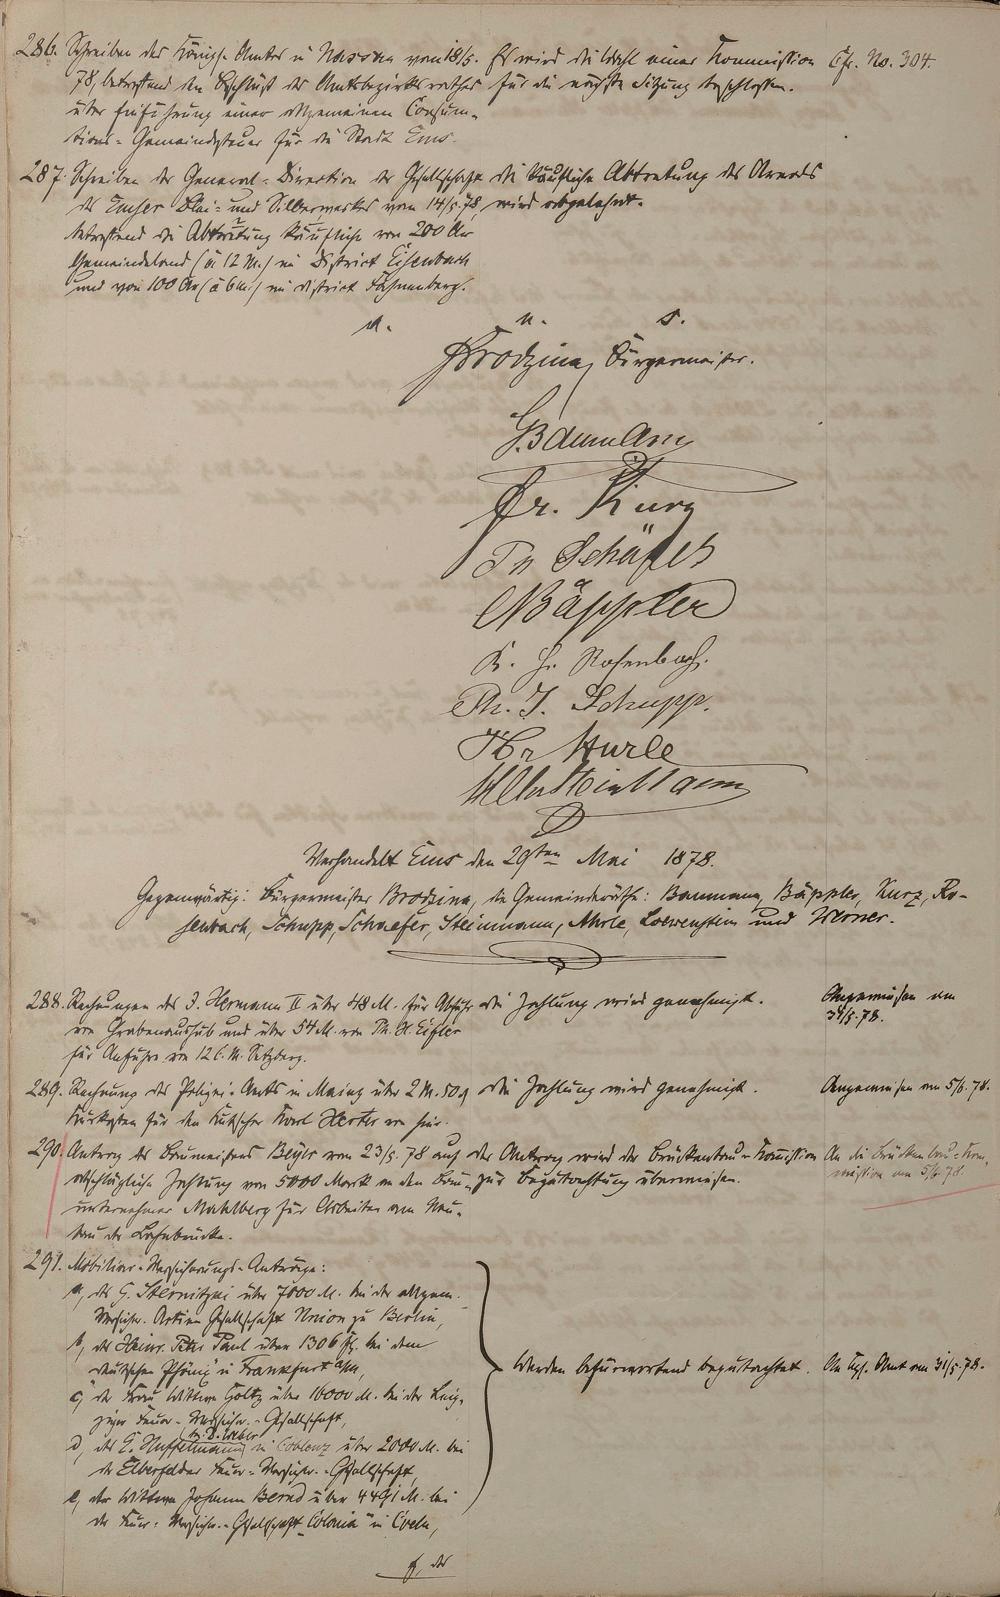 286. Schreiben des Königl. Amtes in Nassau vom 18/5.
78, betreffend den Beschluß des Amtsbezirksrathes
über Einführung einer allgemeinen Consum-
tions-Gemeindesteuer für die Stadt Ems.
Es wird die Wahl einer Kommission
für die nächste Sitzung beschlossen.
Cfr. No. 304.
287. Schreiben der General-Direction der Gesellschaft
des Emser Blei- und Silberwerkes vom 14/5 78,
betreffend die Abtretung käuflich von 200 Ar
Gemeindeland (à 12 M.) im District Eisenbach
und von 100 Ar (à 6 M.) im District
die käufliche Abtretung des Areals
wird abgelehnt.
u. s.
Brodzina, Bürgermeister.
G. Baumann
Dr. Kurz
Schäfer
Bäppler
Rosenbach.
Ph. J. Schupp.
Steinmann
Verhandelt Ems den 29ten Mai 1878.
Gegenwärtig: Bürgermeister Brodzina, die Gemeinderäthe: Baumann, Bäppler, Kurz, Ro-
senbach, Schupp, Schaefer, Steinmann, Ahrle, Loewenstein und Werner.
288. Rechnungen des J. Hermann II über 48 M. für Abfuhr
von Grabenaushub und über 54 M. von
für Anfuhr von 12 C. M.
die Zahlung wird genehmigt.
Angewiesen am
31/5.78.
289. Rechnung des Polizei-Amts in Mainz über 2 M. 50
Kurkosten für den Kutscher Karl Herter von hier.
die Zahlung wird genehmigt.
Angewiesen am 5/6.78.
290. Antrag des Baumeisters vom 23/5. 78 auf
abschlägliche Zahlung von 5000 Mark an den Bau-
unternehmer Mahlberg für Arbeiten am Neu-
bau der Lahnbrücke.
der Antrag wird der Brückenbau-Kommission
zur Begutachtung überwiesen.
An die Brückenbau-Kom-
mission am 5/6.78.
291. Mobiliar-Versicherungs-Anträge:
a, des G. über 7000 M. bei der allgem.
Versicher. Actien Gesellschaft Union zu Berlin,
b, des Heinr. Peter Paul über 1306 bei dem
deutschen Phönix in Frankfurt a/M,
c, der Frau Wittwe Goltz über 16000 M. bei der Leip-
ziger Feuer-Versicher.-Gesellschaft,
d, des E. Nuffelmann in Coblenz über 2000 M. bei
der Elberfelder Feuer-Versicher.-Gesellschaft,
e, der Wittwe Johann Bernd über 4491 M. bei
der Feuer-Versicher.-Gesellschaft „Colonia" in Coeln,
werden befürwortend begutachtet.
An Kgl. Amt am 31/5.78.
f, der